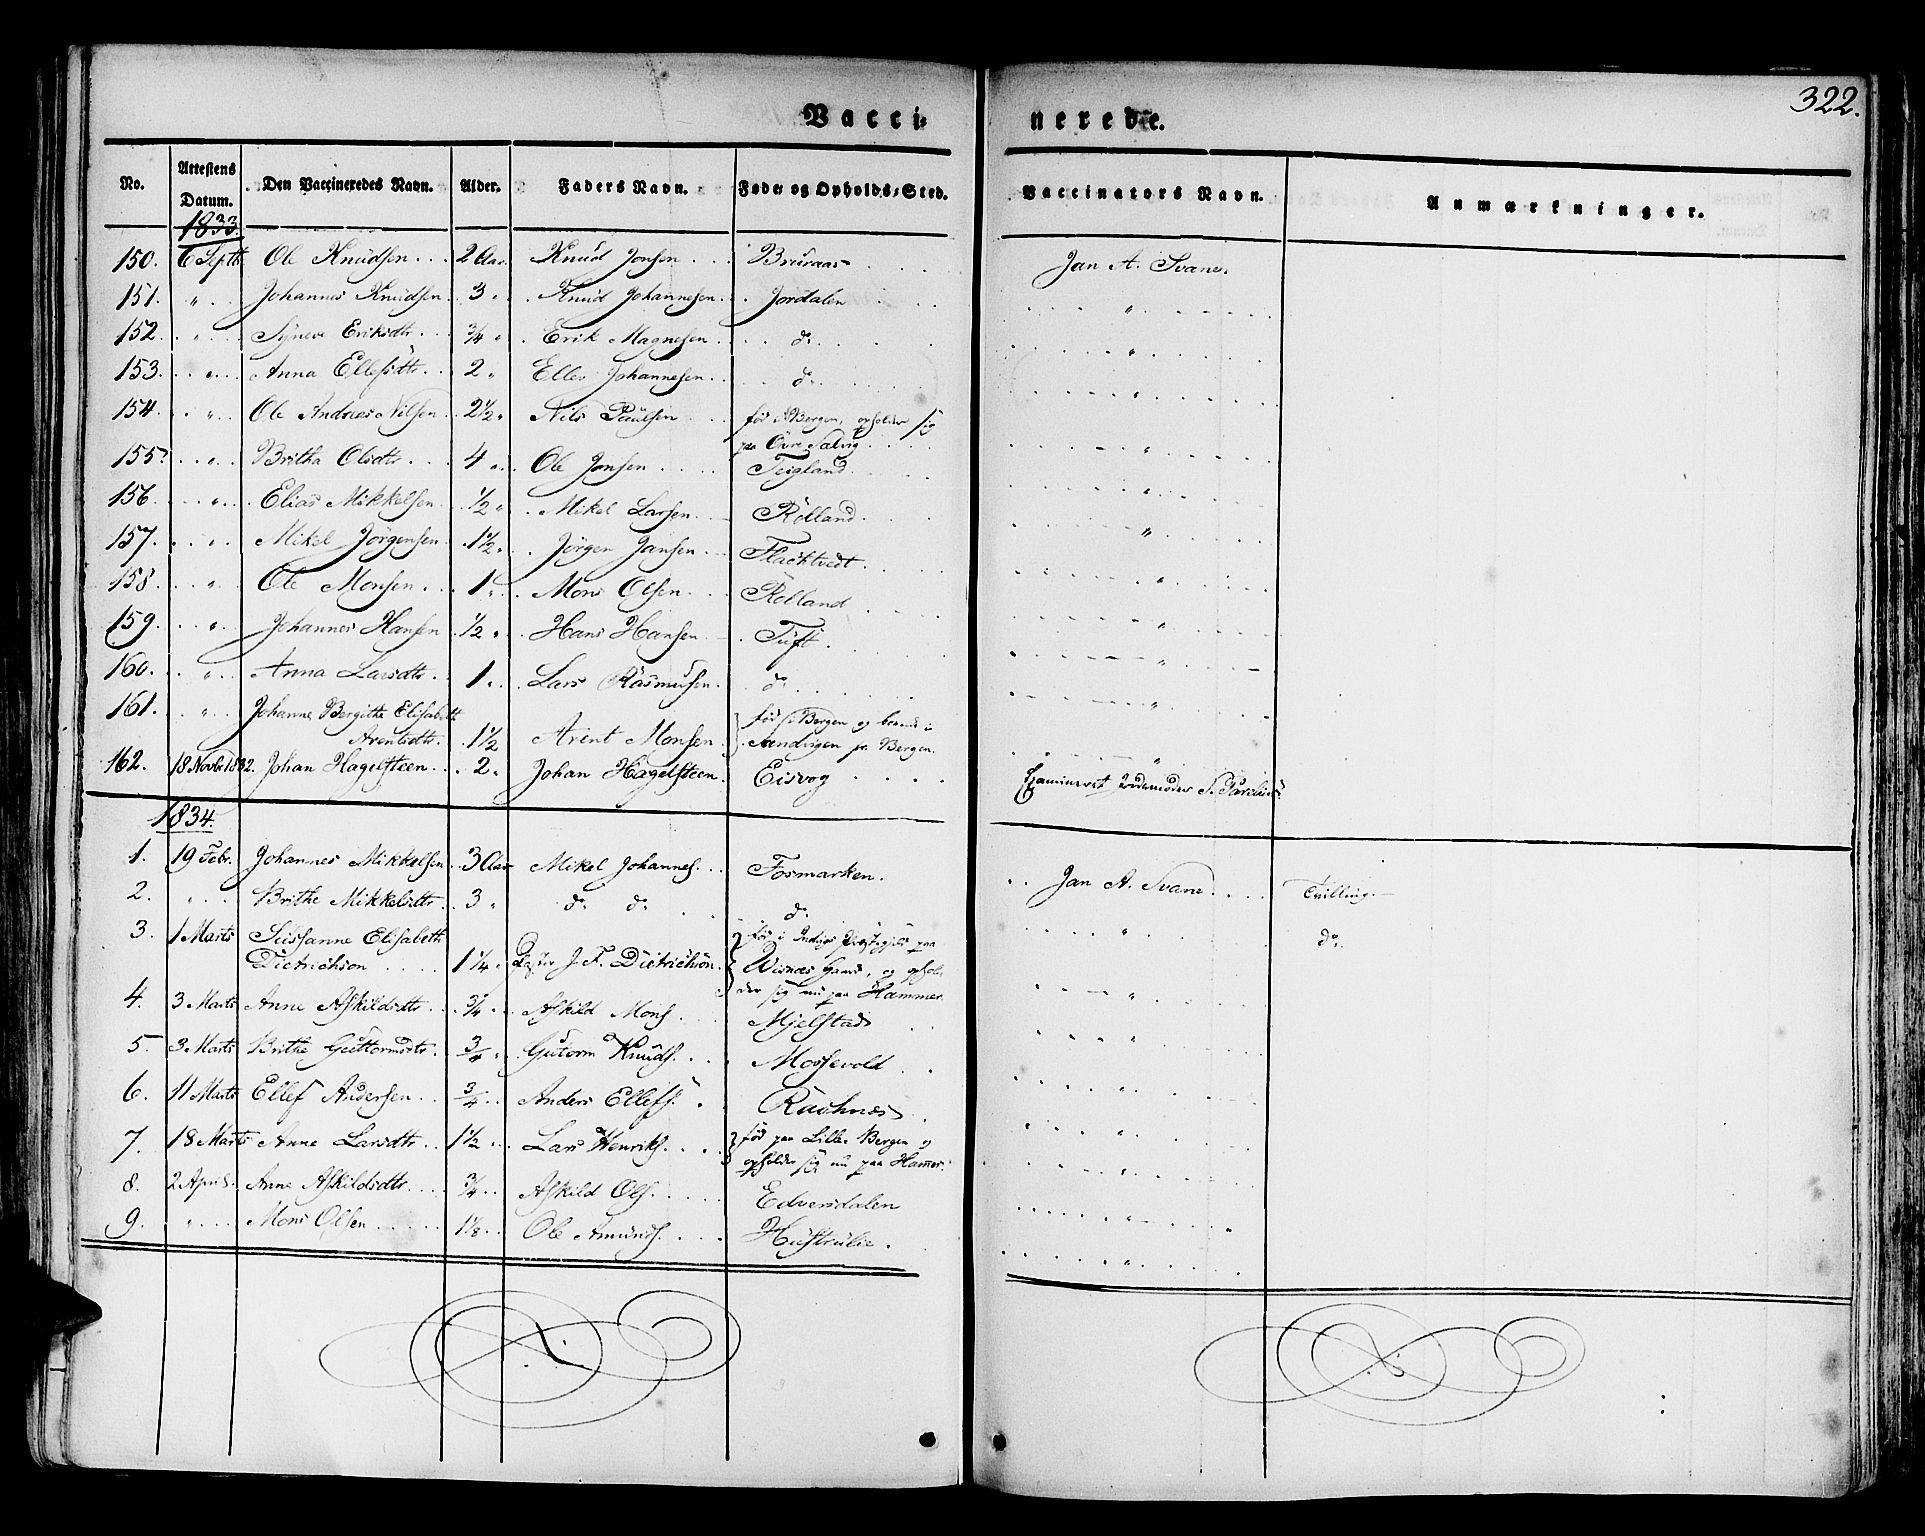 322.
Vacci-
nerede.
No. Attestens Datum. Den Vaccineredes Navn. Alder. Faders Navn. Føde og Opholds-Sted. Vaccinators Navn. Anmærkninger.
1833.
150. 6 Septb. Ole Knudsen 2 Aar Knud Jonsen Bruraas Jan A. Svane.
151. " Johannes Knudsen 3 " Knud Johannesen Jordalen "
152. " Syneve Eriksdtr 3/4 " Erik Magnesen do "
153. " Anna Ellefsdtr 2 " Ellef Johannesen do "
154. " Ole Andreas Nilsen 2 1/2 " Nils Paulsen fød i Bergen, opholder sig
paa Øvre Salvig "
155. " Britha Olsdtr 4 " Ole Jonsen Teigland "
156. " Elias Mikkelsen 1/2 " Mikel Larsen Rølland "
157. " Mikel Jörgensen 1 1/2 " Jörgen Jansen Flacktvedt "
158. " Ole Monsen 1 " Mons Olsen Rolland "
159. " Johannes Hansen 1/2 " Hans Hansen Tuft "
160. " Anna Larsdtr 1 " Lars Rasmusen do "
161. " Johanne Bergithe Elisabeth
Arentsdtr. 1 1/2 Arent Monsen fød i Bergen og boende i
Sandvigen pr. Bergen. "
162. 18 Novbr 1832. Johan Hagelsteen 2 " Johan Hagelsteen Eisvog Examineret Jordemoder
1834.
1. 19 Febr. Johannes Mikkelsen 3 Aar Mikel Johannes. Fosmarken. Jan A. Svane Tvilling.
2. " Brithe Mikkelsdtr 3 " do do do " do.
3. 1 Marts Sussanne Elisabeth
Dietrichson 1 1/4 " J. F. Dietrichson. fød i Indvigs Præstegjeld paa
Wisnæs Gaard, og ophol-
der sig nu paa Hammer "
4. 3 Marts Anne Askildsdtr 3/4 " Askild Mons. Mjelstad "
5. 3 Marts Brithe Guttormsdtr. 3/4 " Gutorm Knuds. Mossevold "
6. 11 Marts Ellef Andersen 3/4 Anders Ellefs. Raehnæs "
7. 18 Marts Anne Larsdtr 1 1/2 Lars Henriks. fød paa Lille Bergen og
opholder sig nu paa Hamer. "
8. 2 April Anne Askildsdtr 3/4 Askild Ols. Edversdalen "
9. " Mons Olsen 1 1/8 Ole Amunds. Hustrulie. "